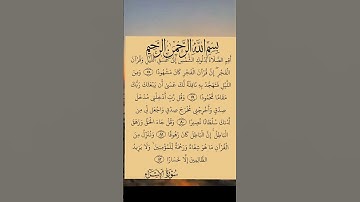 بسم الله الرحمن الرحيم
أقم الصلاة لدلوك الشمس إلى غسق الليل وقرآن
الفجر إن قرآن الفجر كان مشهودا ٧٨ ومن
الليل فتهجد به نافلة لك عسى أن يبعثك ربك
مقاما محمودا ٧٩ وقل رب أدخلني مدخل
صدق وأخرجني مخرج صدق واجعل لي من
لدنك سلطانا نصيرا ٨٠ وقل جاء الحق وزهق
الباطل إن الباطل كان زهوقا ٨١ وننزل من
القرآن ما هو شفاء ورحمة للمؤمنين ولا يزيد
الظالمين إلا خسارا ٨٢
سورة الإسراء